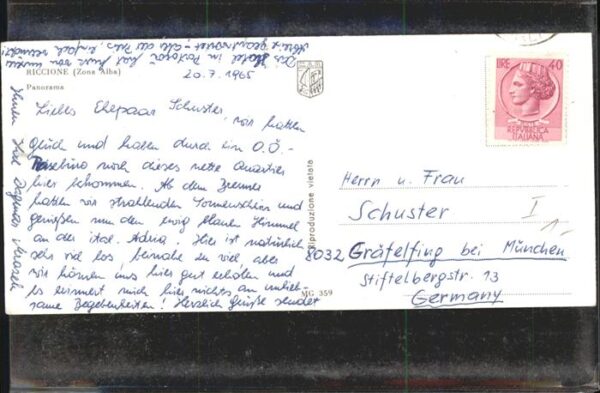 RICCIONE (Zona Alba)
Panorama
20.7.1965
Liebes Ehepaar Schuster, wir hatten
Glück und haben durch ein O.Ö.-
Reisebüro noch dieses nette Quartier
hier bekommen. Ab dem Brenner
hatten wir strahlenden Sonnenschein und
genießen nun den ewig blauen Himmel
an der ital. Adria. Hier ist natürlich
sehr viel los, beinahe zu viel, aber
wir können uns hier gut erholen und
es erinnert mich hier nichts an unlieb-
same Begebenheiten! Herzliche Grüße sendet
Ihnen
Das Hotel in
hat
einfach
MG 359
Riproduzione vietata
LIRE 40
REPVBBLICA
ITALIANA
Herrn u. Frau
Schuster
I
8032 Gräfelfing bei München
Stiftelbergstr. 13
Germany